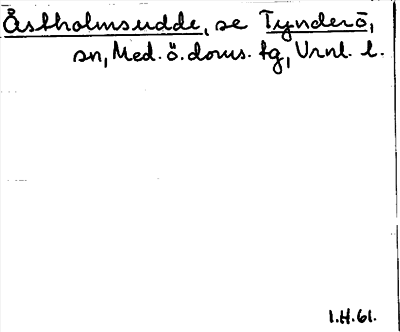 Åstholmsudde, se Tynderö,
sn, Med. ö. doms. tg, Vrnl. l.
1.H.61.